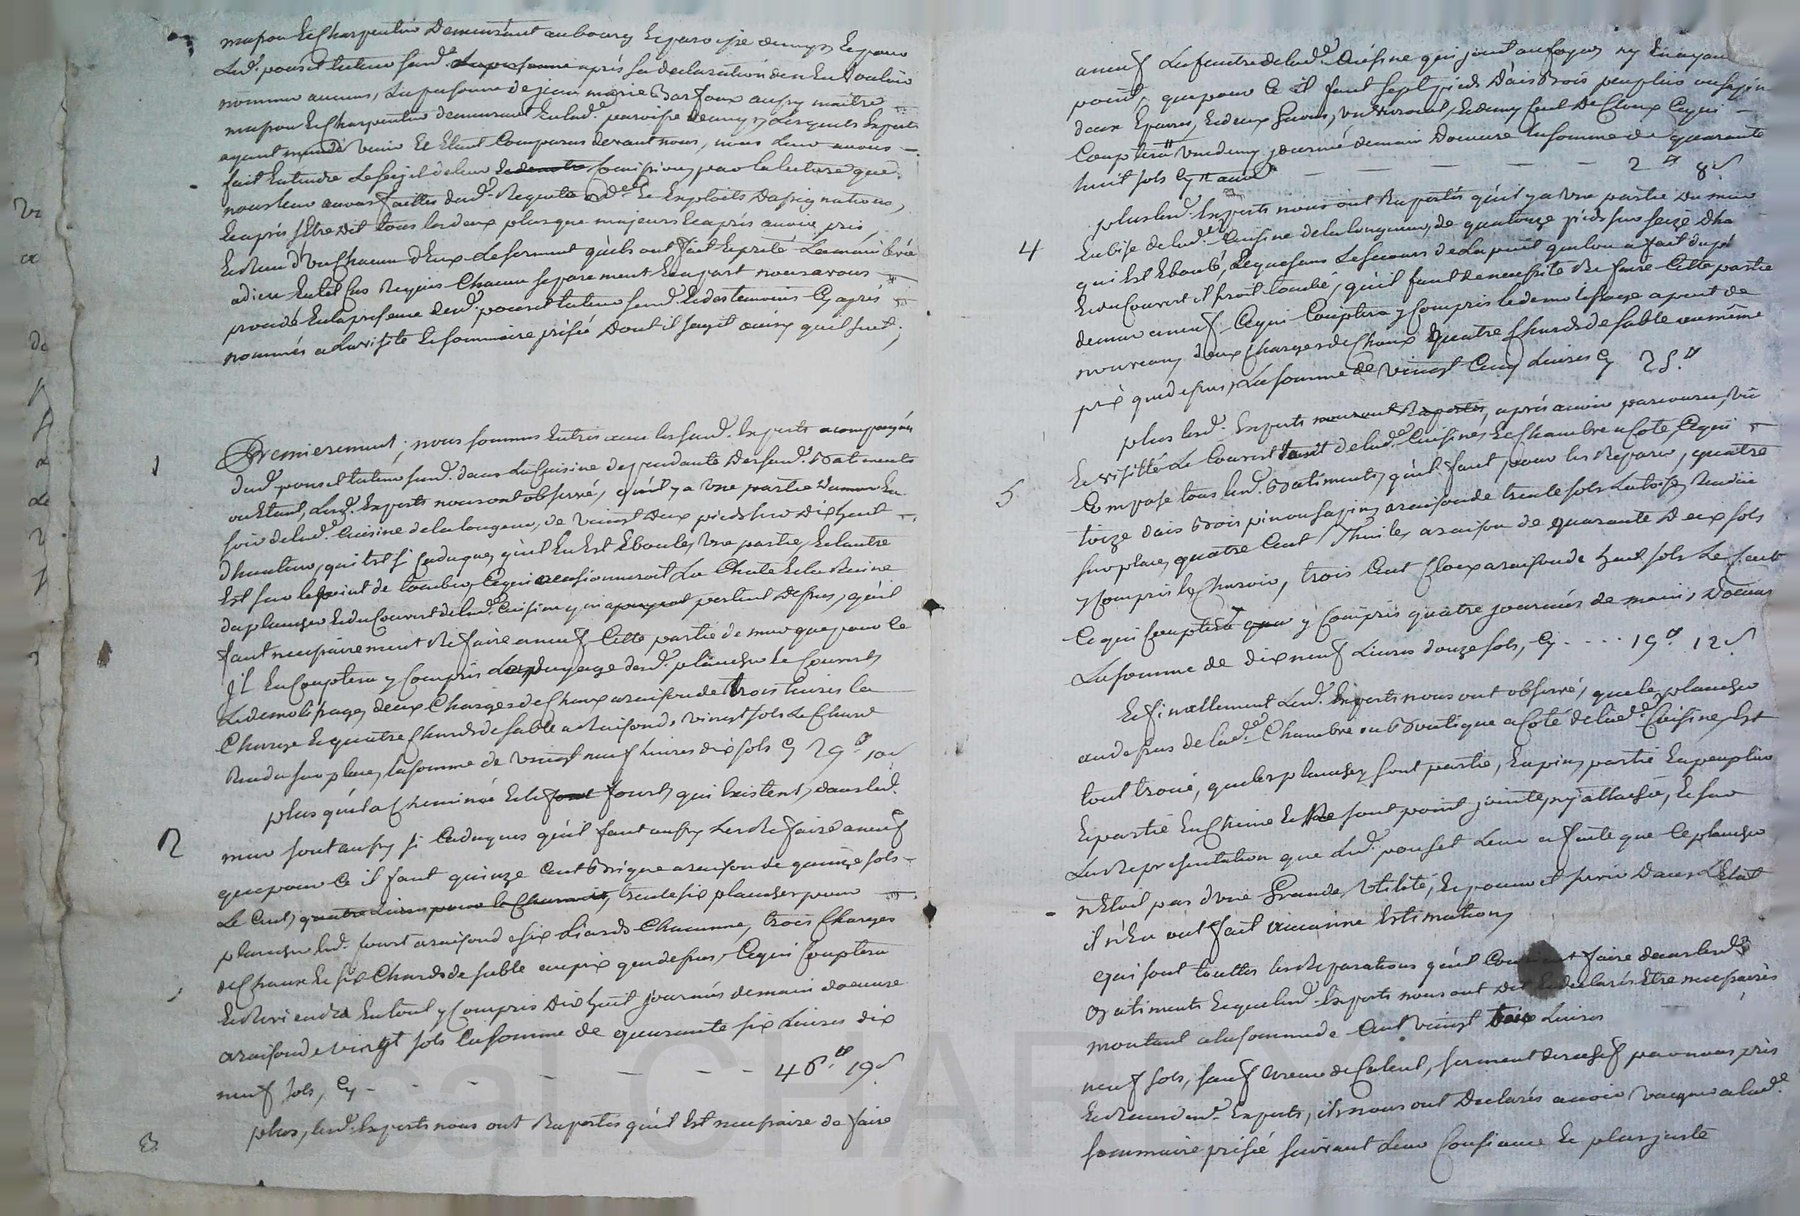 masson et charpentier demeurant au bourg et paroisse
led. ponset tuteur susd. après sa declaration den en vouloir
nommer aucuns, la personne de jean marie Barjoux aussy maitre
masson et charpentier demeurant en lad. paroisse lesquels experts
ayant mandé venir et etant comparus devant nous, nous leur avons
fait entendre le sujet de leur commission, par la lecture que
nous leur avons faittes desd. Requete ord.ce et exploits d'assignations,
et après s'etre dit tous les deux plus que majeurs et après avoir pris
et Reçu d'un chacun d'eux le serment qu'ils ont fait et preté la main levée
a dieu en tel cas Requis chacun separement et a part nous avons
procédé en la presence dud. ponset tuteur susd. et des temoins cy après
nommés a la visite et sommaire prisée dont il s'agit ainsy quil suit;
1
Premierement, nous sommes entrés avec les susd. Experts accompagnés
dud. ponset tuteur susd. dans la Cuisine dependante des susd. Batiments
ou etant, lesd. Experts nous ont observé, qu'il y a une partie du mur en
soir de lad. Cuisine de la longueur, de vingt deux pieds sur dix huit
d'hauteur, qui est si caduque, qu'il en est eboulé, une partie, et l'autre
est sur le point de tomber, ce qui occasionneroit la chute et la Ruine
du plancher et du couvert de lad. Cuisine, qu'il
faut necessairement Refaire a neuf cette partie de mur que pour ce
Il en couptera y compris dud. plancher et couvert,
et demolissage, deux charges de chaux a raison de trois livres la
Charge et quatre chards de sable a Raison de vingt sols le chard
Rendu sur place, la somme de vingt neuf Livres dix sols cy 29# 10s
2
plus qu'ils a cheminée et le fourt, qui existent, dans led.
mur sont aussy si caduques qu'il faut aussy les Refaire a neuf
que pour ce il faut quinze cent Brique a raison de quinze sols
Le cent, quatre livres pour le charroir, trente six plancher pour
plancher led. fourt a raison de six Liards chacune, trois charges
de Chaux et six chards de sable au prix que dessus, ce qui couptera
et Reviendra en tout y compris dix huit journées de main doeuvre
a raison de vingt sols la somme de quarante six Livres dix
neuf sols, cy - - - - - - 46# 19s
3
plus, lesd. Experts nous ont Raporté qu'il est necessaire de faire
a neuf la fenetre de lad. Cuisine qui joint au foyer, ny en ayant
point, que pour ce il faut sept pieds d'ais Bois peuplier ou sapin
deux Epares, et deux Gonds, un verrouil, et demy cent de Cloux ce qui
couptera une demy journée de main doeuvre la somme de quarante
huit sols cy - - - - - 2# 8s
4
plus lesd. Experts nous ont Raportés qu'il y a une partie du mur
en bise de lad. Cuisine de la longueur, de quatorze pieds sur seize d'ha
qui est eboulé, et que sans le secours de la point quelon a fait dessus
et au couvert il seroit tombé, qu'il faut de necessité Refaire cette partie
de mur a neuf. ce qui couptera y compris le demolissage a point de
nouveau, deux charges de chaux quatre chards de sable au même
prix que dessus, la somme de vingt cinq Livres cy 25#
5
plus lesd. Experts nous ont Raportés, après avoir parcouru, vu
et visitté le couvert de lad. Cuisine, et chambre a coté, ce qui
compose tous lesd. Batiments, qu'il faut pour les Reparer, quatre
toize d'ais Bois pin ou sapin, a raison de trente sols la toise, Rendue
sur place, quatre cent Thuiles a raison de quarante deux sols
y compris le charroir, trois cent Cloux a raison de huit sols le cent
ce qui couptera y compris quatre journées de main, d'oeuvre
La somme de dix neuf Livres douze sols, cy - - - - 19# 12s
Et finallement lesd. Experts nous ont observé, que le plancher
au dessus de lad. Chambre ou Boutique a coté de lad. Cuisine, Est
tout troué, que les planches sont partie, en pin, partie en peuplier
et partie en chene et ne sont point jointes, ny attachée, et sur
La Representation que led. ponset leur a faite que ce plancher
n'etoit pas d'une Grande utilité, et pouvoit servir dans l'Etat
il n'en ont fait aucunne Estimation,
qui sont touttes les Reparations qu'il convient faire dans lesd.
Batiments et que lesd. Experts nous ont dit et declarés Etre necessaires
montant a la somme de Cent vingt trois Livres
neuf sols, sauf erreur de calcul, serment derechef par nous pris
et Reçu desd. Experts, ils nous ont declarés avoir vacqué a lad.
sommaire prisée suivant leur conscience le plus juste